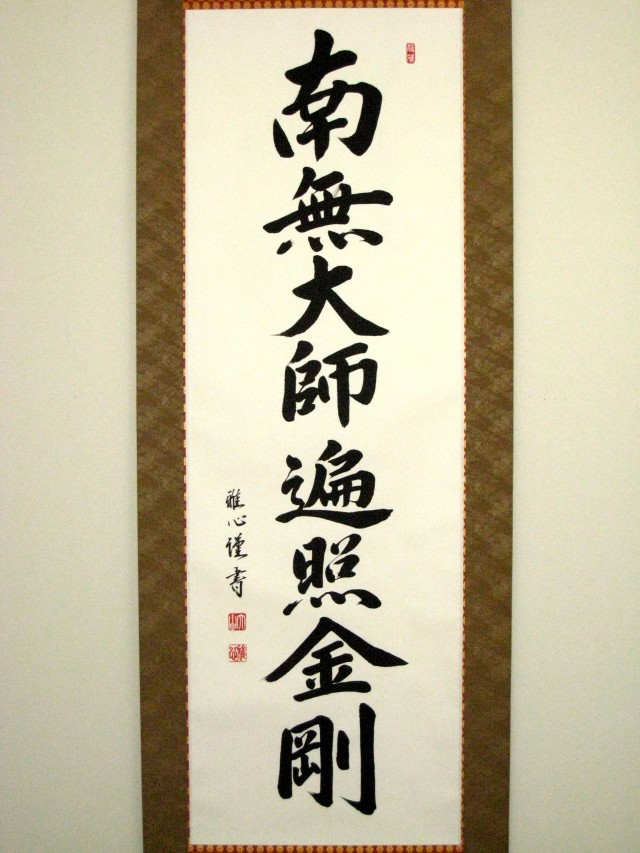 南無大師遍照金剛
雅心謹書